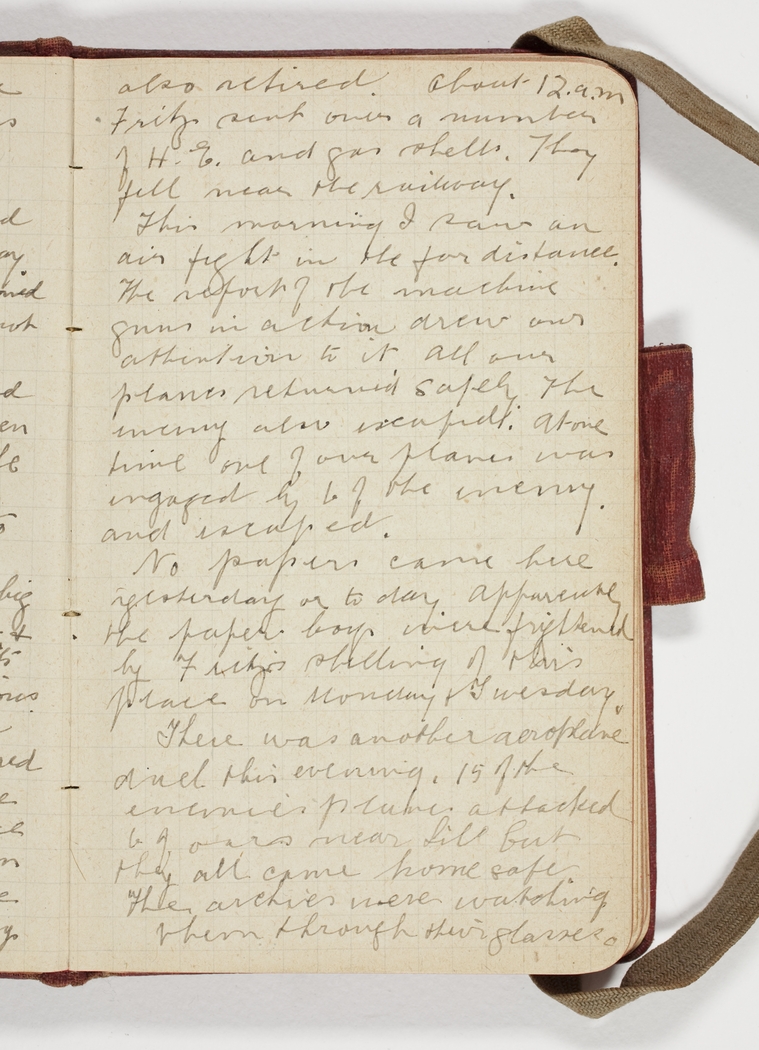 also retired. About 12.a.m
Fritz sent over a number
of H.E. and gas shells. They
fell near the railway.
This morning I saw an
air fight in the far distance.
The report of the machine
guns in action drew our
attention to it All our
planes returned safely The
enemy also escaped. At one
time one of our planes was
engaged by 6 of the enemy.
and escaped.
No papers came here
yesterday or to day Apparently
the paper boys were frightened
by Fritz's shelling of this
place on Monday & Tuesday
There was another aeroplane
duel this evening. 15 of the
enemies planes attacked
6 of ours near Lill but
they all came home safe
The archies were watching
them through their glasses